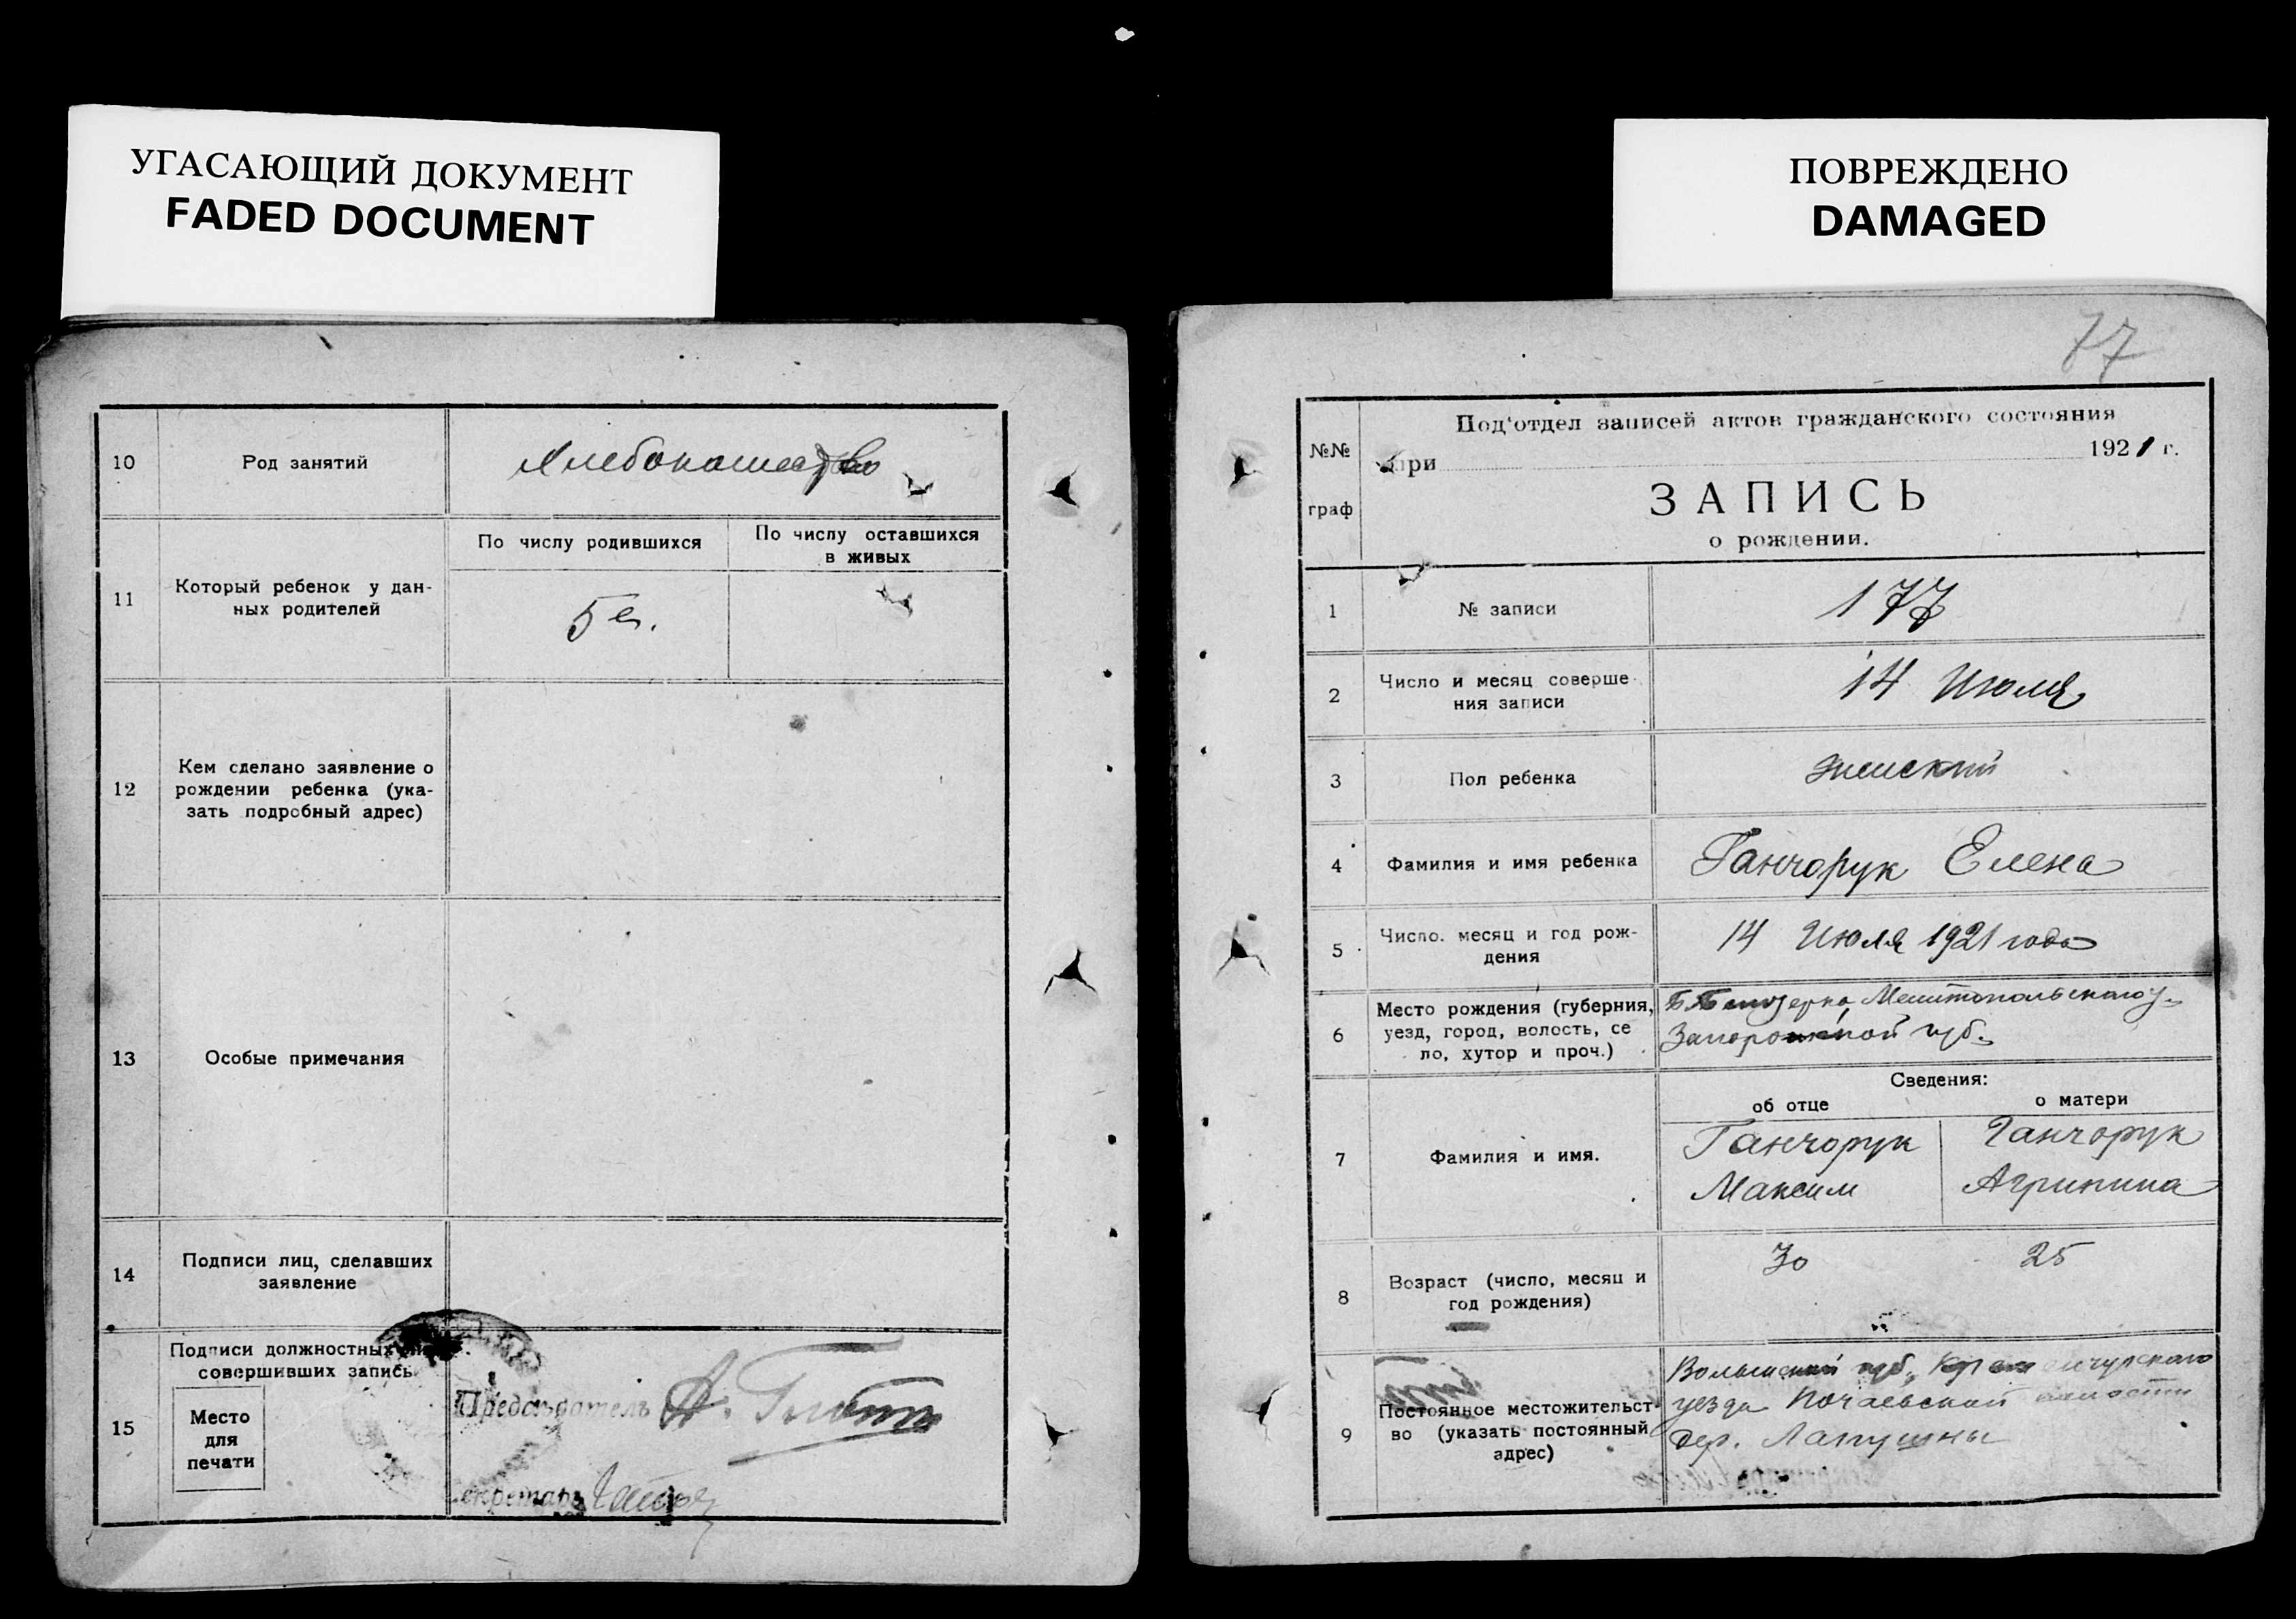 УГАСАЮЩИЙ ДОКУМЕНТ
FADED DOCUMENT
10
Род занятий
Хлебопашество
11
Который ребенок у дан-
ных родителей
По числу родившихся
По числу оставшихся
в живых
5
12
Кем сделано заявление о
рождении ребенка (ука-
зать подробный адрес)
13
Особые примечания
14
Подписи лиц, сделавших
заявление
15
Подписи должностных
совершивших запись
Место
для
печати
Председатель
Секретарь
ПОВРЕЖДЕНО
DAMAGED
77
№№
граф
Под'отдел записей актов гражданского состояния
при 1921 г.
ЗАПИСЬ
о рождении.
1
№ записи
177
2
Число и месяц соверше
ния записи
14 Июля
3
Пол ребенка
женский
4
Фамилия и имя ребенка
Ганчорук Елена
5
Число. месяц и год рож-
дения
14 Июля 1921 года
6
Место рождения (губерния,
уезд, город, волость, се
ло, хутор и проч.)
Мелитопольского у.
Запорожской губ.
Сведения:
об отце
о матери
7
Фамилия и имя.
Ганчорук
Максим
Ганчорук
Агрипина
8
Возраст (число, месяц и
год рождения)
30
25
9
Постоянное местожительст-
во (указать постоянный
адрес)
Волынской губ.
уезда Почаевской волости
дер. Лапушны